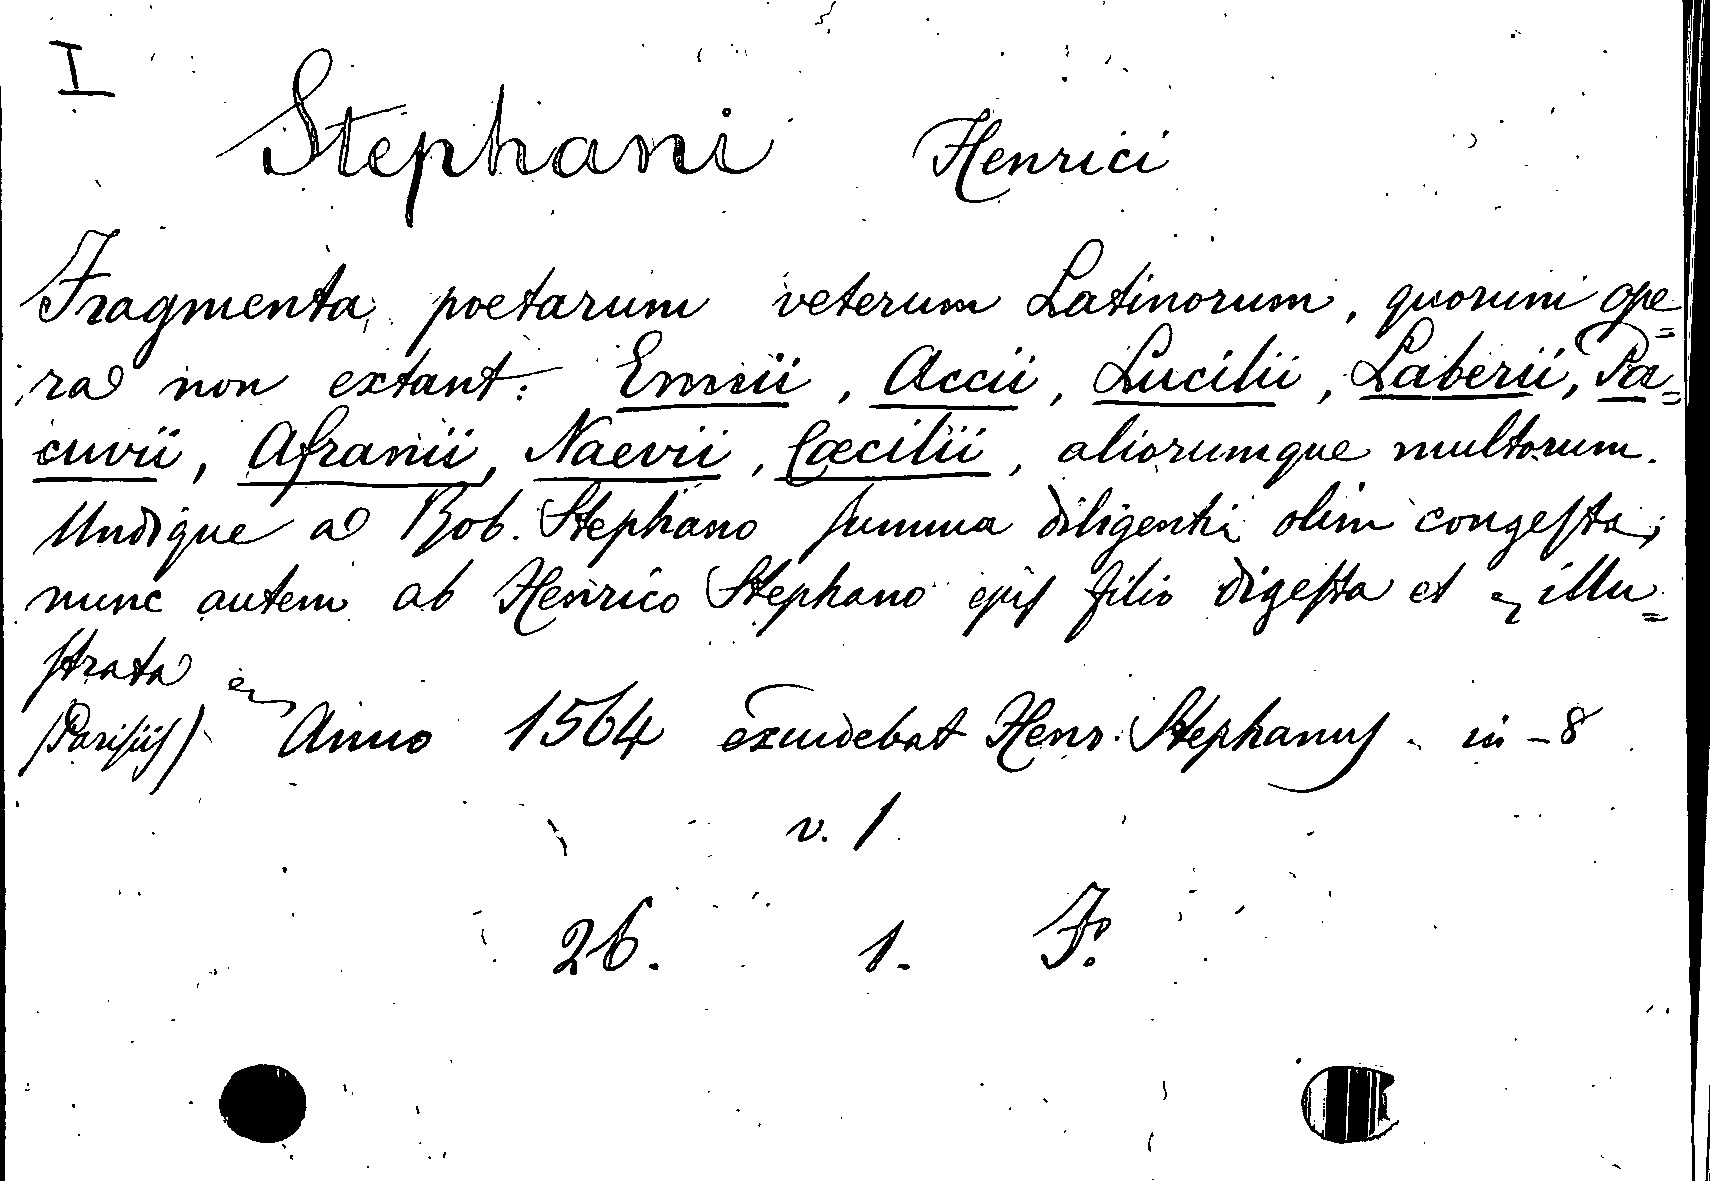 I
Stephani Henrici
Fragmenta poetarum veterum Latinorum, quorum ope=
ra non extant: Ennii, Accii, Lucilii, Laberii, Pa=
cuvii, Afranii, Naevii, Cæcilii, aliorumque multorum.
Undique a Rob. Stephano ſumma diligentia olim congeſta;
nunc autem ab Henrico Stephano ejuſ filio digeſta et illu=
ſtrata
(Pariſiiſ) Anno 1564 excudebat Henr. Stephanuſ - in - 8
v. 1
26. 1. F.